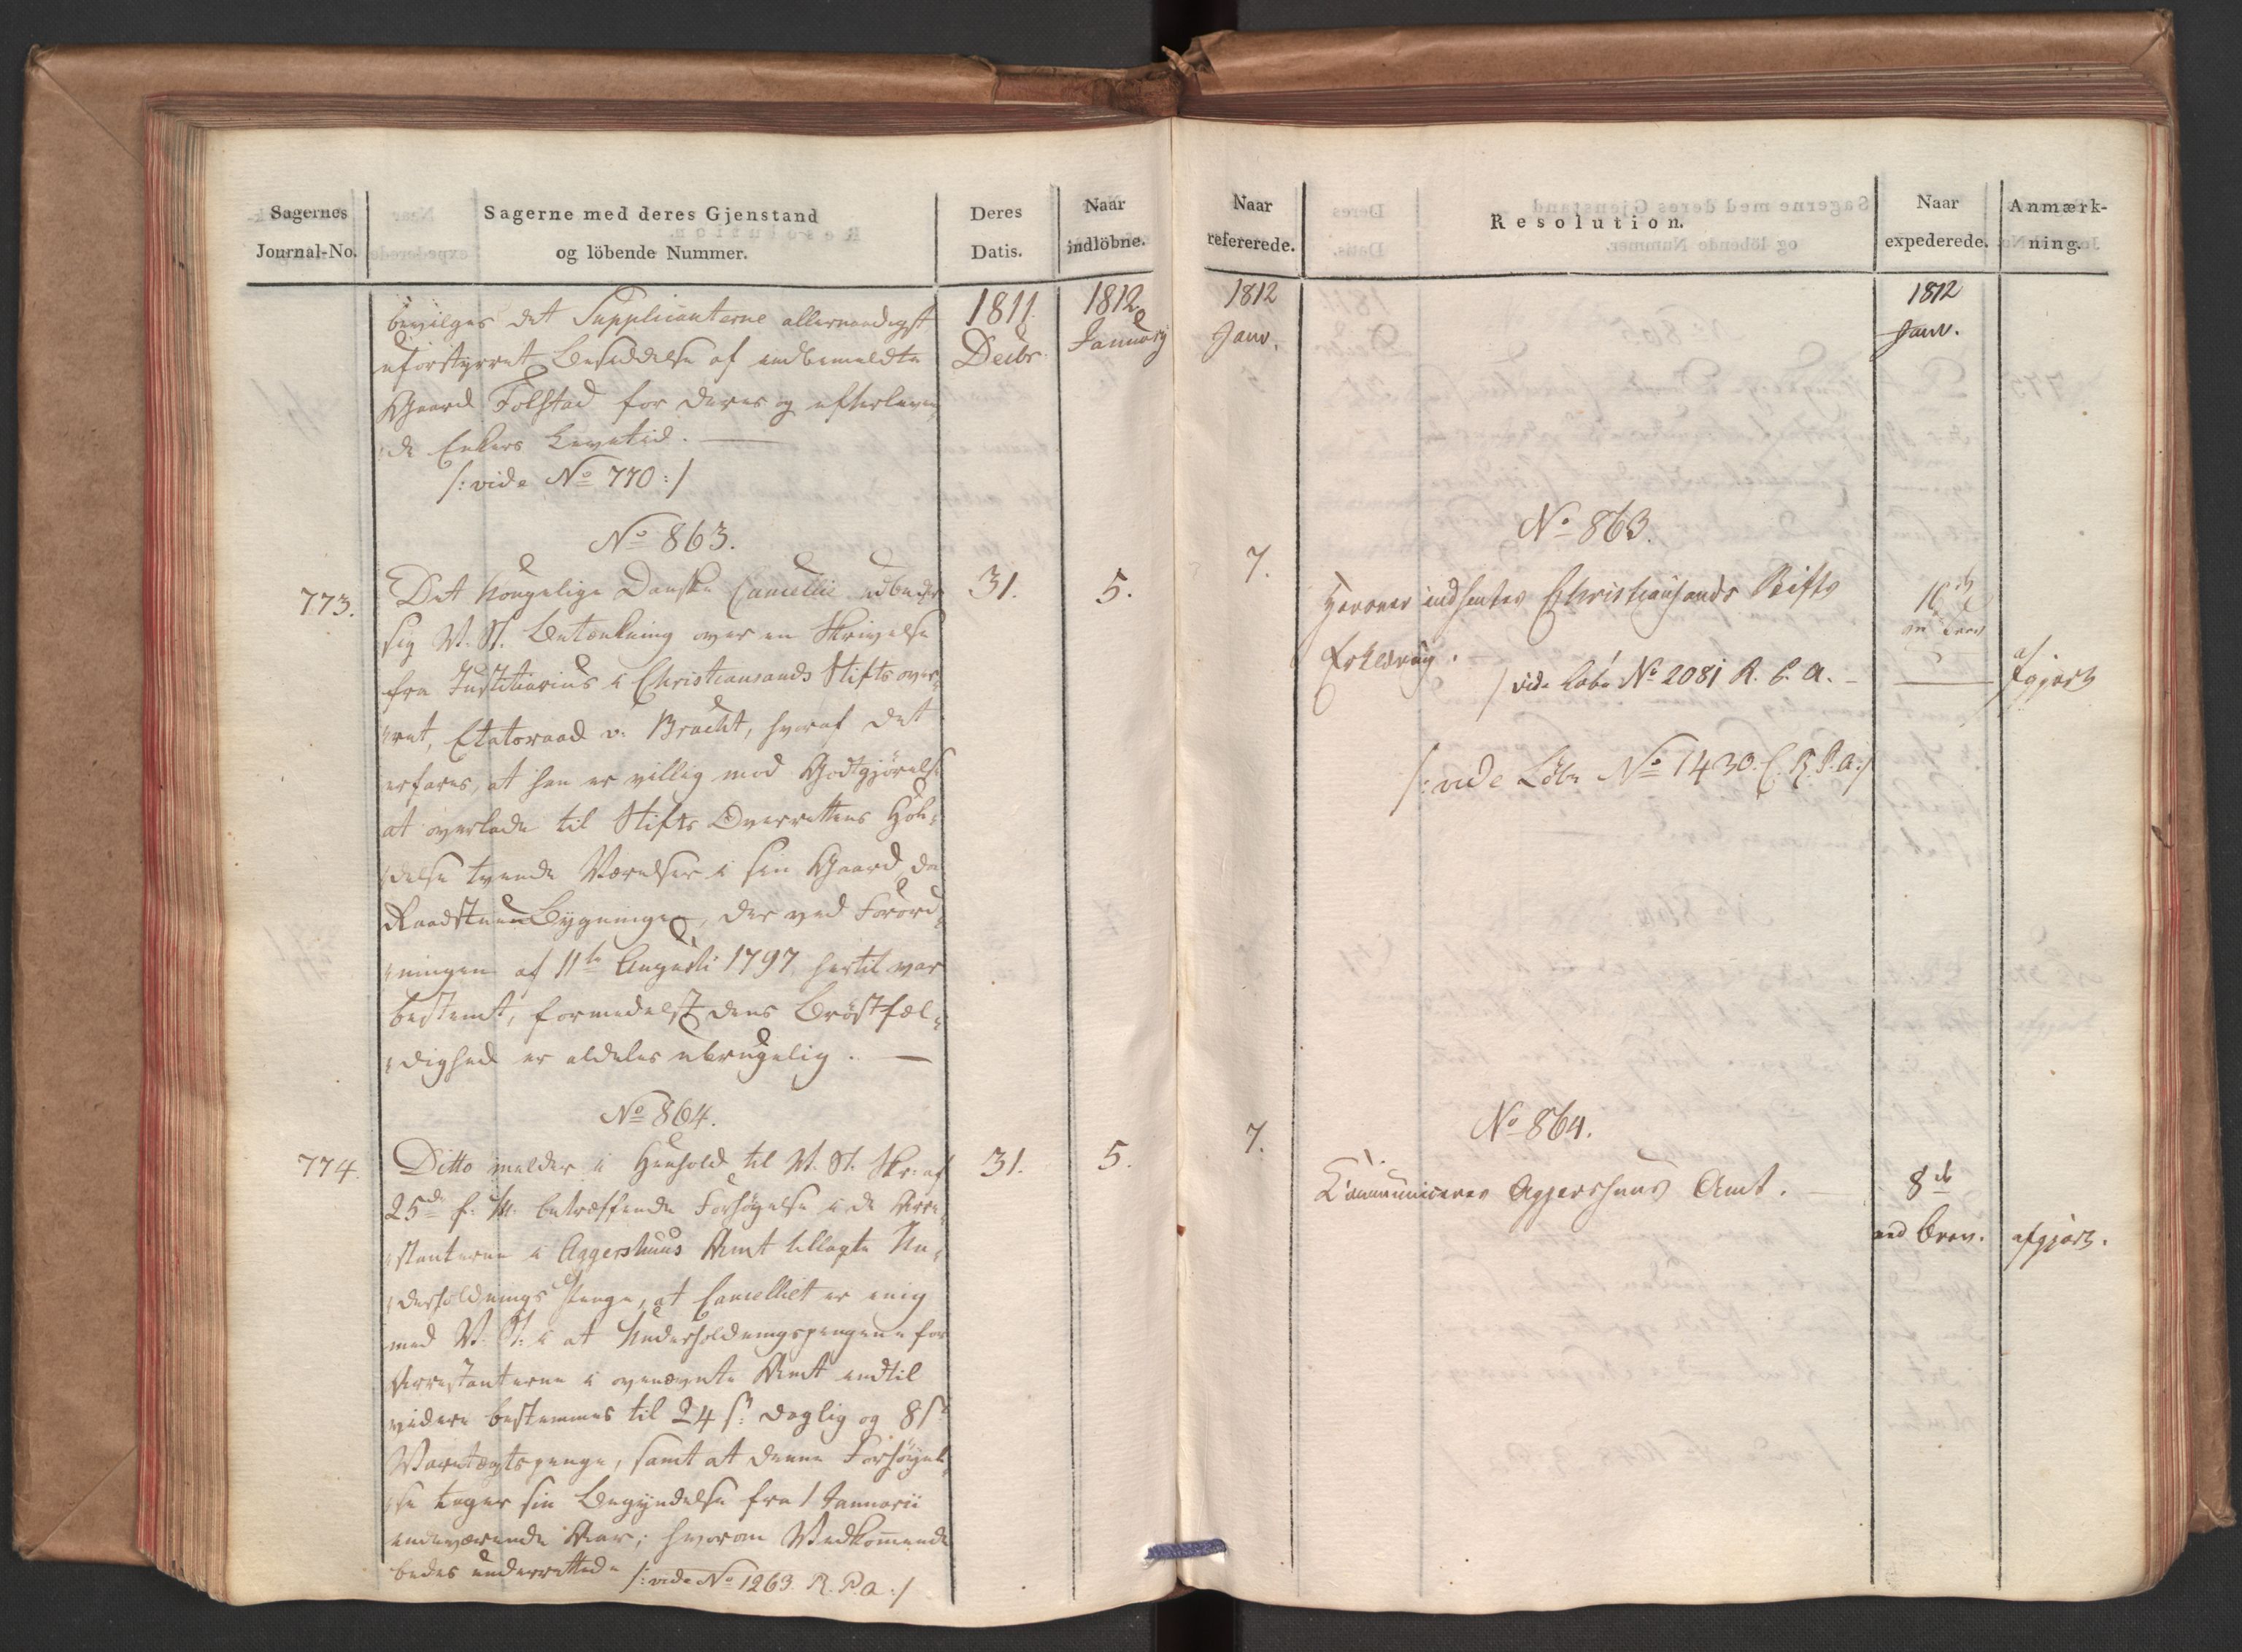 Sagernes
Journal-No.
Sagerne med deres Gjenstand
og löbende Nummer.
Deres
Datis.
Naar
indlöbne.
1811.
Decbr.
1812
Januarÿ
bevilges det Supplicanterne allernaadigst
uforstyrret Besiddelse af indbemeldte
Gaard Folstad for deres og efterleven
de Enkers Levetid.
/: vide No 770 :/
No 863.
773.
Det kongelige Danske Cancellie udbeder
sig V. St. Betænkning over en Skrivelse
fra Justitiarius i Christiansands Stifts over
ret, Etatsraad v. Bracht, hvoraf det
erfares, at han er villig mod Godtgjörelse
at overlade til Stifts Overrettens Hol-
delse tvende Værelser i sin Gaard, da
Raadstue Bygningen, der ved Forord-
ningen af 11te Augusti 1797 hertil var
bestemt, formedelst dens Bröstfæl-
dighed er aldeles ubrugelig.
31.
5.
No 864.
774.
Ditto melder i Henhold til V. St. Skr. af
25de f. M. betræffende Forhöyelse i de Arre-
stanterne i Aggershuus Amt tillagte Un-
derholdnings Penge, at Cancelliet er enig
med V. St. i at Underholdningspengene for
Arrestanterne i ovenævnte Amt indtil
videre bestemmes til 24 s. daglig og 8 s.
Varetægtspenge, samt at denne Forhöyel-
se tager sin Begyndelse fra 1 Januarii
indeværende Aar; hvorom Vedkommende
bedes underrettede /: vide No 1263. R. P. A :/
31.
5.
Naar
refererede.
Resolution.
Naar
expederede.
Anmærk-
ning.
1812
Janv.
1812
Janv.
No 863.
7.
Herover indhentes Christiansands Stifts
Erklæring.
/ vide Löbe No 2081 R. P. A.
/: vide Löbe No 1430. C. R. P. A :/
16de
Brev
afgjort
No 864.
7.
Communiceres Aggershuus Amt.
8de
ved Brev.
afgjort.